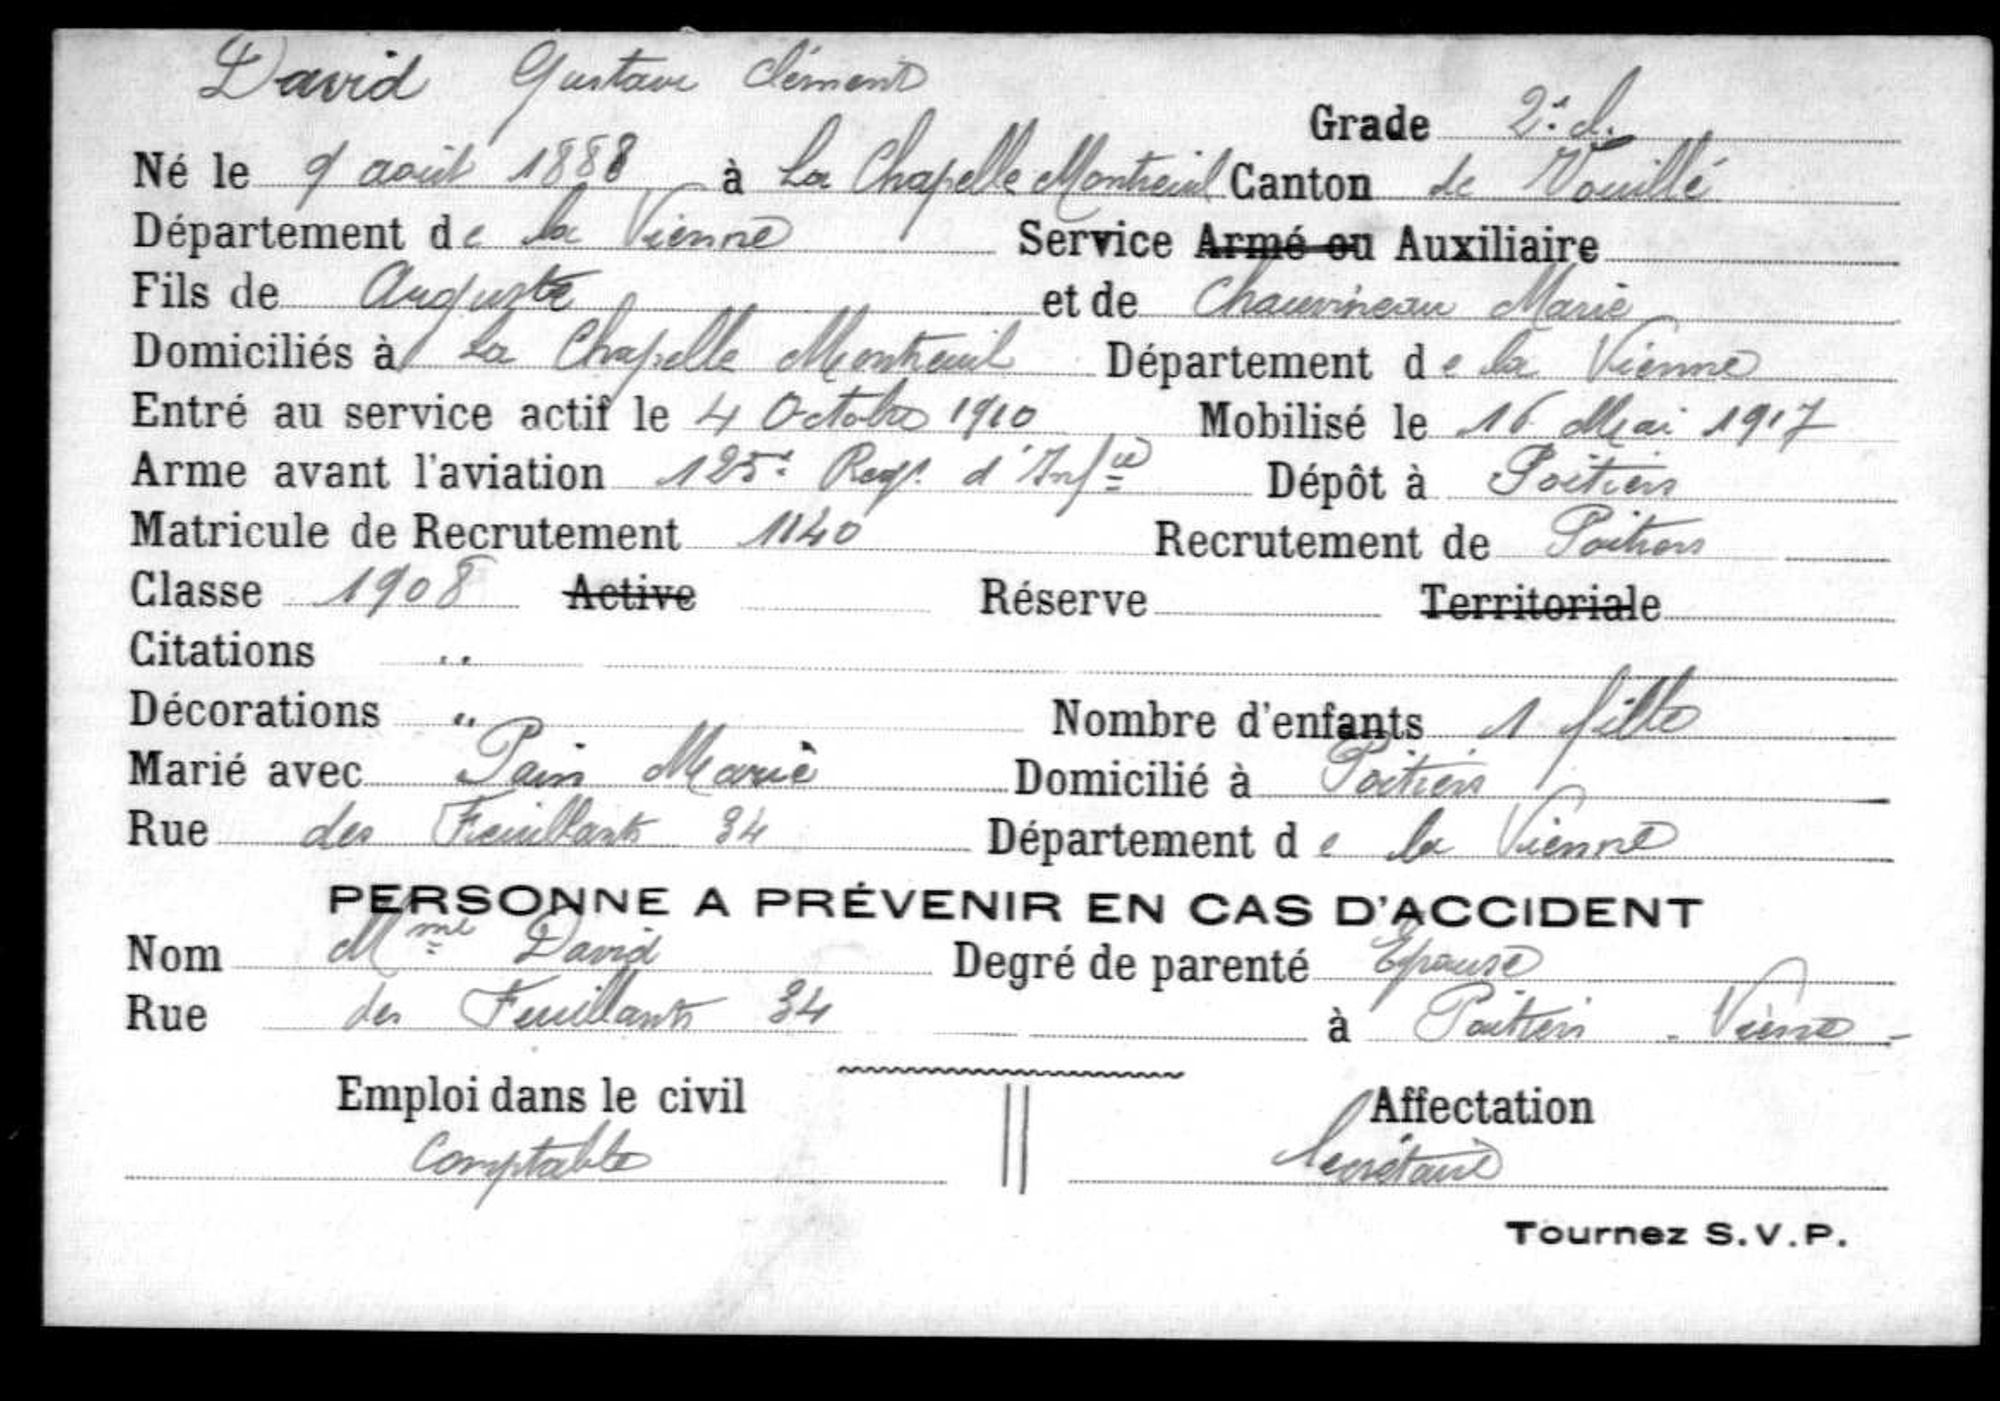 David Gustave Clément
Grade 2e cl.
Né le 9 août 1888 à La Chapelle Montreuil Canton de Vouillé
Département de la Vienne Service Armé ou Auxiliaire
Fils de Auguste et de Chauvineau Marie
Domiciliés à La Chapelle Montreuil Département de la Vienne
Entré au service actif le 4 Octobre 1910 Mobilisé le 16 Mai 1917
Arme avant l'aviation 125e Regt. d'Infie Dépôt à Poitiers
Matricule de Recrutement 1140 Recrutement de Poitiers
Classe 1908 Active Réserve Territoriale
Citations "
Décorations " Nombre d'enfants 1 fille
Marié avec Pain Marie Domicilié à Poitiers
Rue des Feuillants 34 Département de la Vienne
PERSONNE A PRÉVENIR EN CAS D'ACCIDENT
Nom Mme David Degré de parenté Epouse
Rue des Feuillants 34 à Poitiers - Vienne -
Emploi dans le civil Affectation
Comptable Secrétaire
Tournez S.V.P.